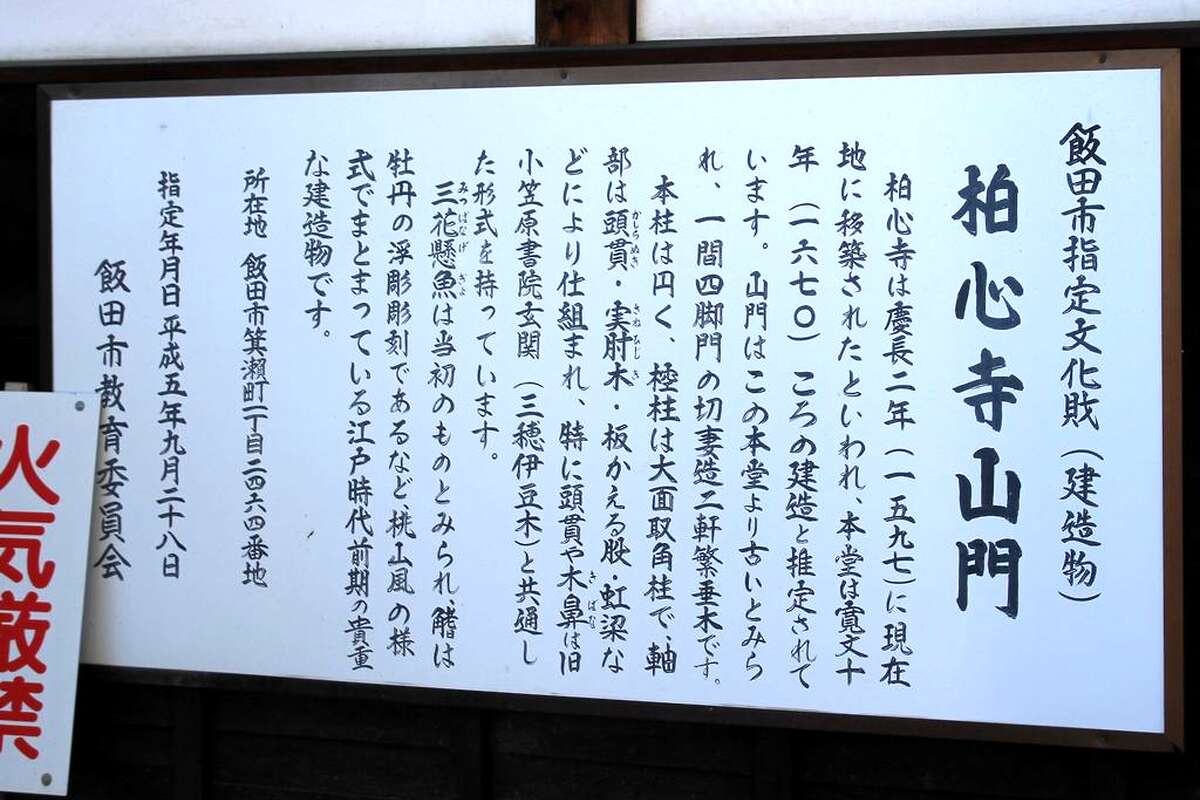 飯田市指定文化財(建造物)
柏心寺山門
柏心寺は慶長二年(一五九七)に現在
地に移築されたといわれ、本堂は寛文十
年(一六七〇)ころの建造と推定されて
います。山門はこの本堂より古いとみら
れ、一間四脚門の切妻造二軒繁垂木です。
本柱は円く、極柱は大面取角柱で、軸
部は頭貫・実肘木・板かえる股・虹梁な
かしらぬき
さねひじき
どにより仕組まれ、特に頭貫や木鼻は旧
きばな
小笠原書院玄関(三穂伊豆木)と共通し
た形式を持っています。
三花懸魚は当初のものとみられ、鰭は
みつばなげぎょ
牡丹の浮彫彫刻であるなど、桃山風の様
式でまとまっている江戸時代前期の貴重
な建造物です。
所在地 飯田市箕瀬町一丁目二四六四番地
指定年月日 平成五年九月二十八日
飯田市教育委員会
火気厳禁